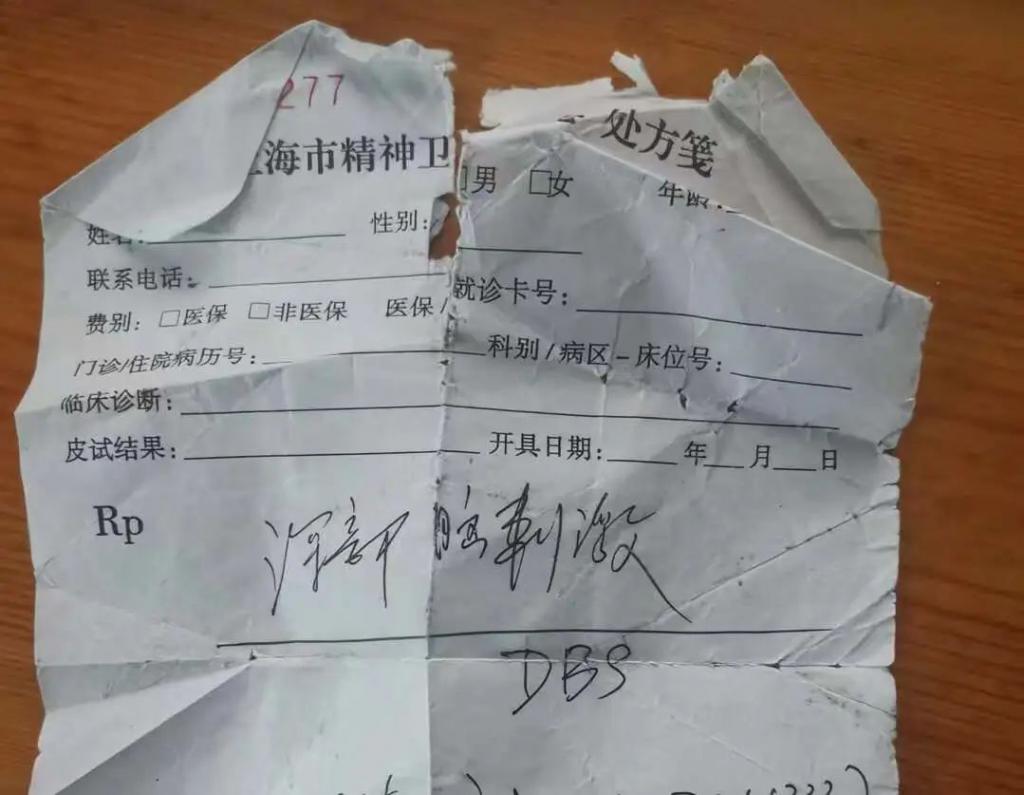 277
海市精神卫 处方笺
姓名: 性别: 男 □女 年龄:
联系电话: 就诊卡号:
费别: □医保 □非医保 医保/
门诊/住院病历号: 科别/病区-床位号:
临床诊断:
皮试结果: 开具日期: 年 月 日
Rp 深部脑刺激
DBS